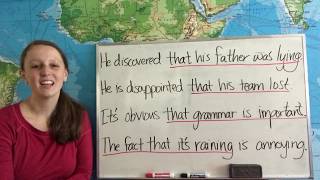 He discovered that his father was lying.
He is disappointed that his team lost.
It's obvious that grammar is important.
The fact that it's raining is annoying.